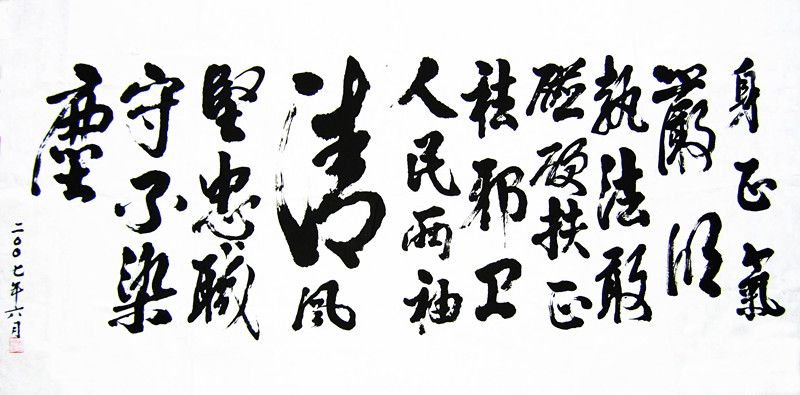 身正氣
嚴明
執法敢
碰硬扶正
祛邪卫
人民两袖
清風
堅忠職
守不染
塵
二〇〇七年六月